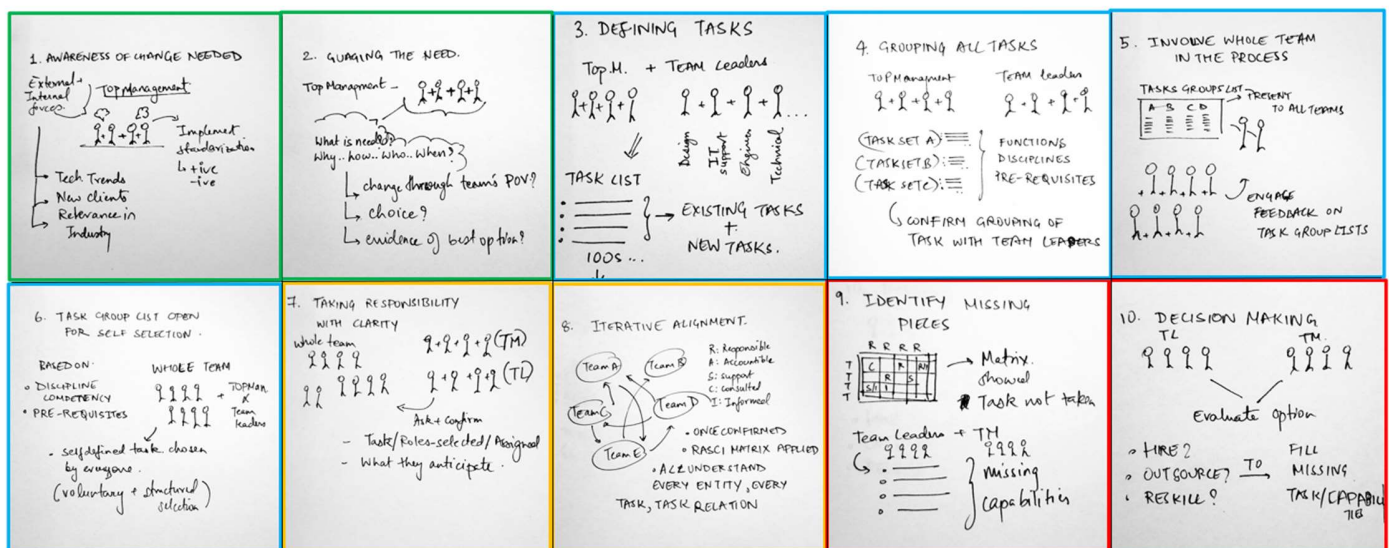 1. AWARENESS OF CHANGE NEEDED
External +
Internal
forces.
Top Management
Implement
standardization
+ive
-ive
Tech Trends
New clients
Relevance in
Industry
2. GUAGING THE NEED.
Top Managment -
What is needed?
Why.. how.. who.. when?
change through team's POV?
choice?
evidence of best option?
3. DEFINING TASKS
Top.M. + TEAM LEADERS
Design
IT support
Engineer
Technical
TASK LIST
100s ...
EXISTING TASKS
+
NEW TASKS.
4. GROUPING ALL TASKS
TOP Managment
TEAM leaders
(TASK SET A):
(TASK SET B):
(TASK SET C):
FUNCTIONS
DISCIPLINES
PRE-REQUISITES
CONFIRM GROUPING OF
TASK WITH TEAM LEADERS
5. INVOLVE WHOLE TEAM
IN THE PROCESS
TASKS GROUPS LIST
A B C D
PRESENT
TO ALL TEAMS
ENGAGE
FEEDBACK ON
TASK GROUP LISTS
6. TASK GROUP LIST OPEN
FOR SELF SELECTION.
BASED ON.
WHOLE TEAM
DISCIPLINE
COMPETENCY
PRE-REQUISITES
+ TOP Man.
&
Team
leaders
selfdefined task chosen
by everyone.
(voluntary + structured
selection)
7. TAKING RESPONSIBILITY
WITH CLARITY
whole team
(TM)
(TL)
Ask + Confirm
- Task/Roles-selected/Assigned
- What they anticipate.
8. ITERATIVE ALIGNMENT.
Team A
Team B
Team C
Team D
Team E
R: Responsible
A: Accountible
S: support
C: consulted
I: Informed
• ONCE CONFIRMED
RASCI MATRIX APPLIED
• ALL UNDERSTAND
EVERY ENTITY, EVERY
TASK, TASK RELATION
9. IDENTIFY MISSING
PIECES
R R R R
T
T
T
T
C R
R S
S/I I
Matrix
showed
Task not taken
Team Leaders + TM
missing
capabilities
10. DECISION MAKING
TL
TM
Evaluate option
• HIRE?
• OUTSOURCE?
• RESKILL?
TO
FILL
MISSING
TASK/CAPABILI
TIES